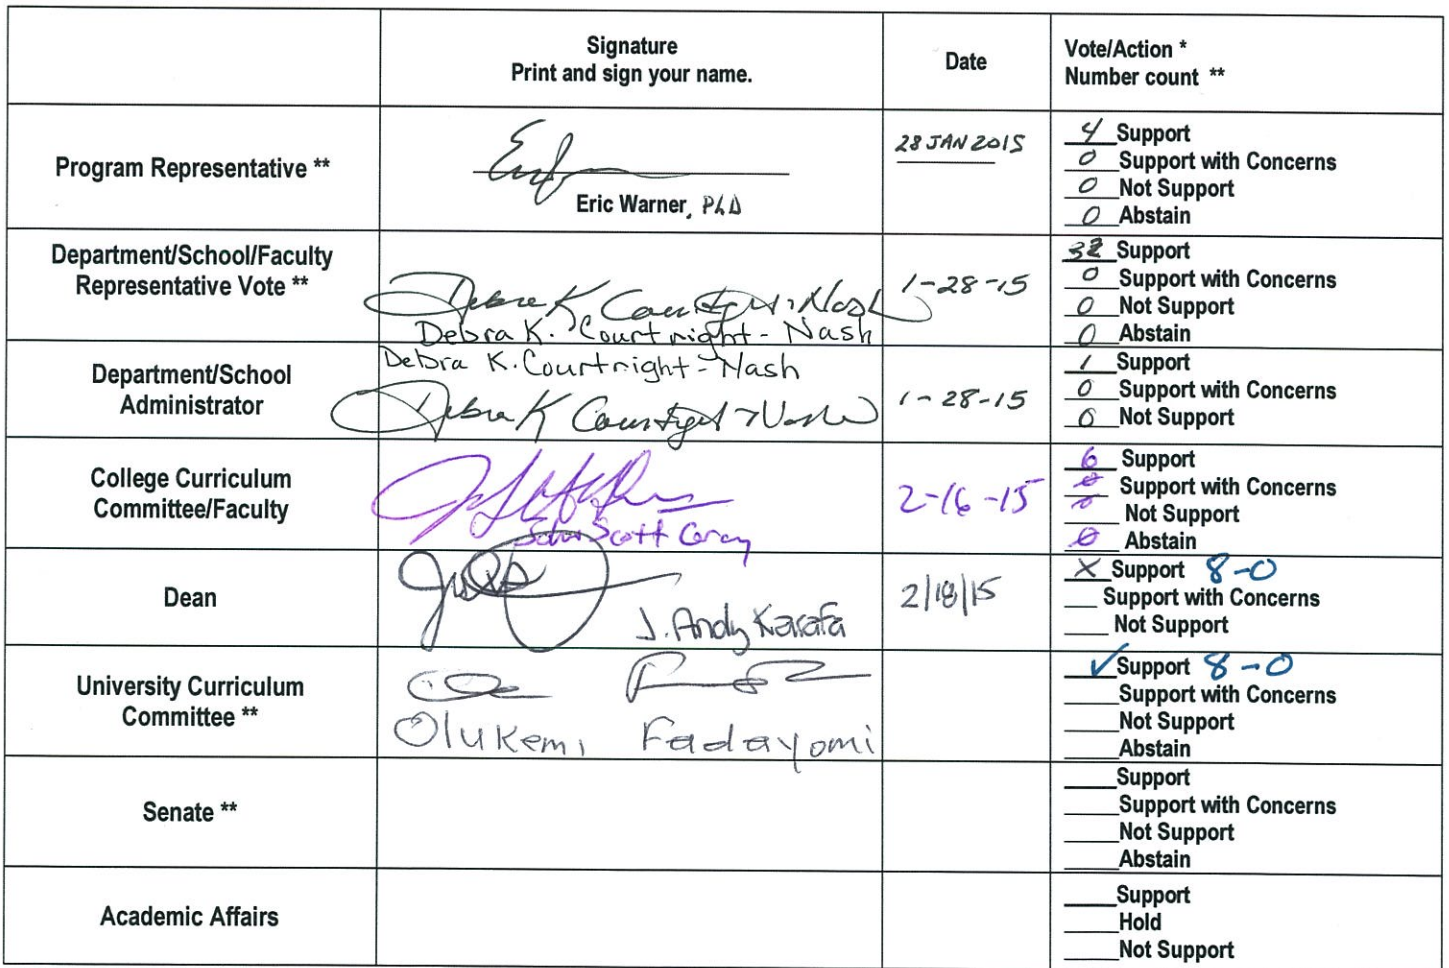 Signature
Print and sign your name.
Date
Vote/Action *
Number count **
Program Representative **
Eric Warner, PhD
28 JAN 2015
4 Support
0 Support with Concerns
0 Not Support
0 Abstain
Department/School/Faculty
Representative Vote **
Debra K Courtright-Nash
Debra K. Courtright-Nash
1-28-15
Support
0 Support with Concerns
0 Not Support
0 Abstain
Department/School
Administrator
Debra K. Courtright-Nash
Debra K Courtright-Nash
1-28-15
1 Support
0 Support with Concerns
0 Not Support
College Curriculum
Committee/Faculty
Scott
2-16-15
6 Support
0 Support with Concerns
0 Not Support
0 Abstain
Dean
J. Andy Karafa
2/18/15
X Support 8-0
Support with Concerns
Not Support
University Curriculum
Committee **
Olukemi Fadayomi
✓ Support 8-0
Support with Concerns
Not Support
Abstain
Senate **
Support
Support with Concerns
Not Support
Abstain
Academic Affairs
Support
Hold
Not Support